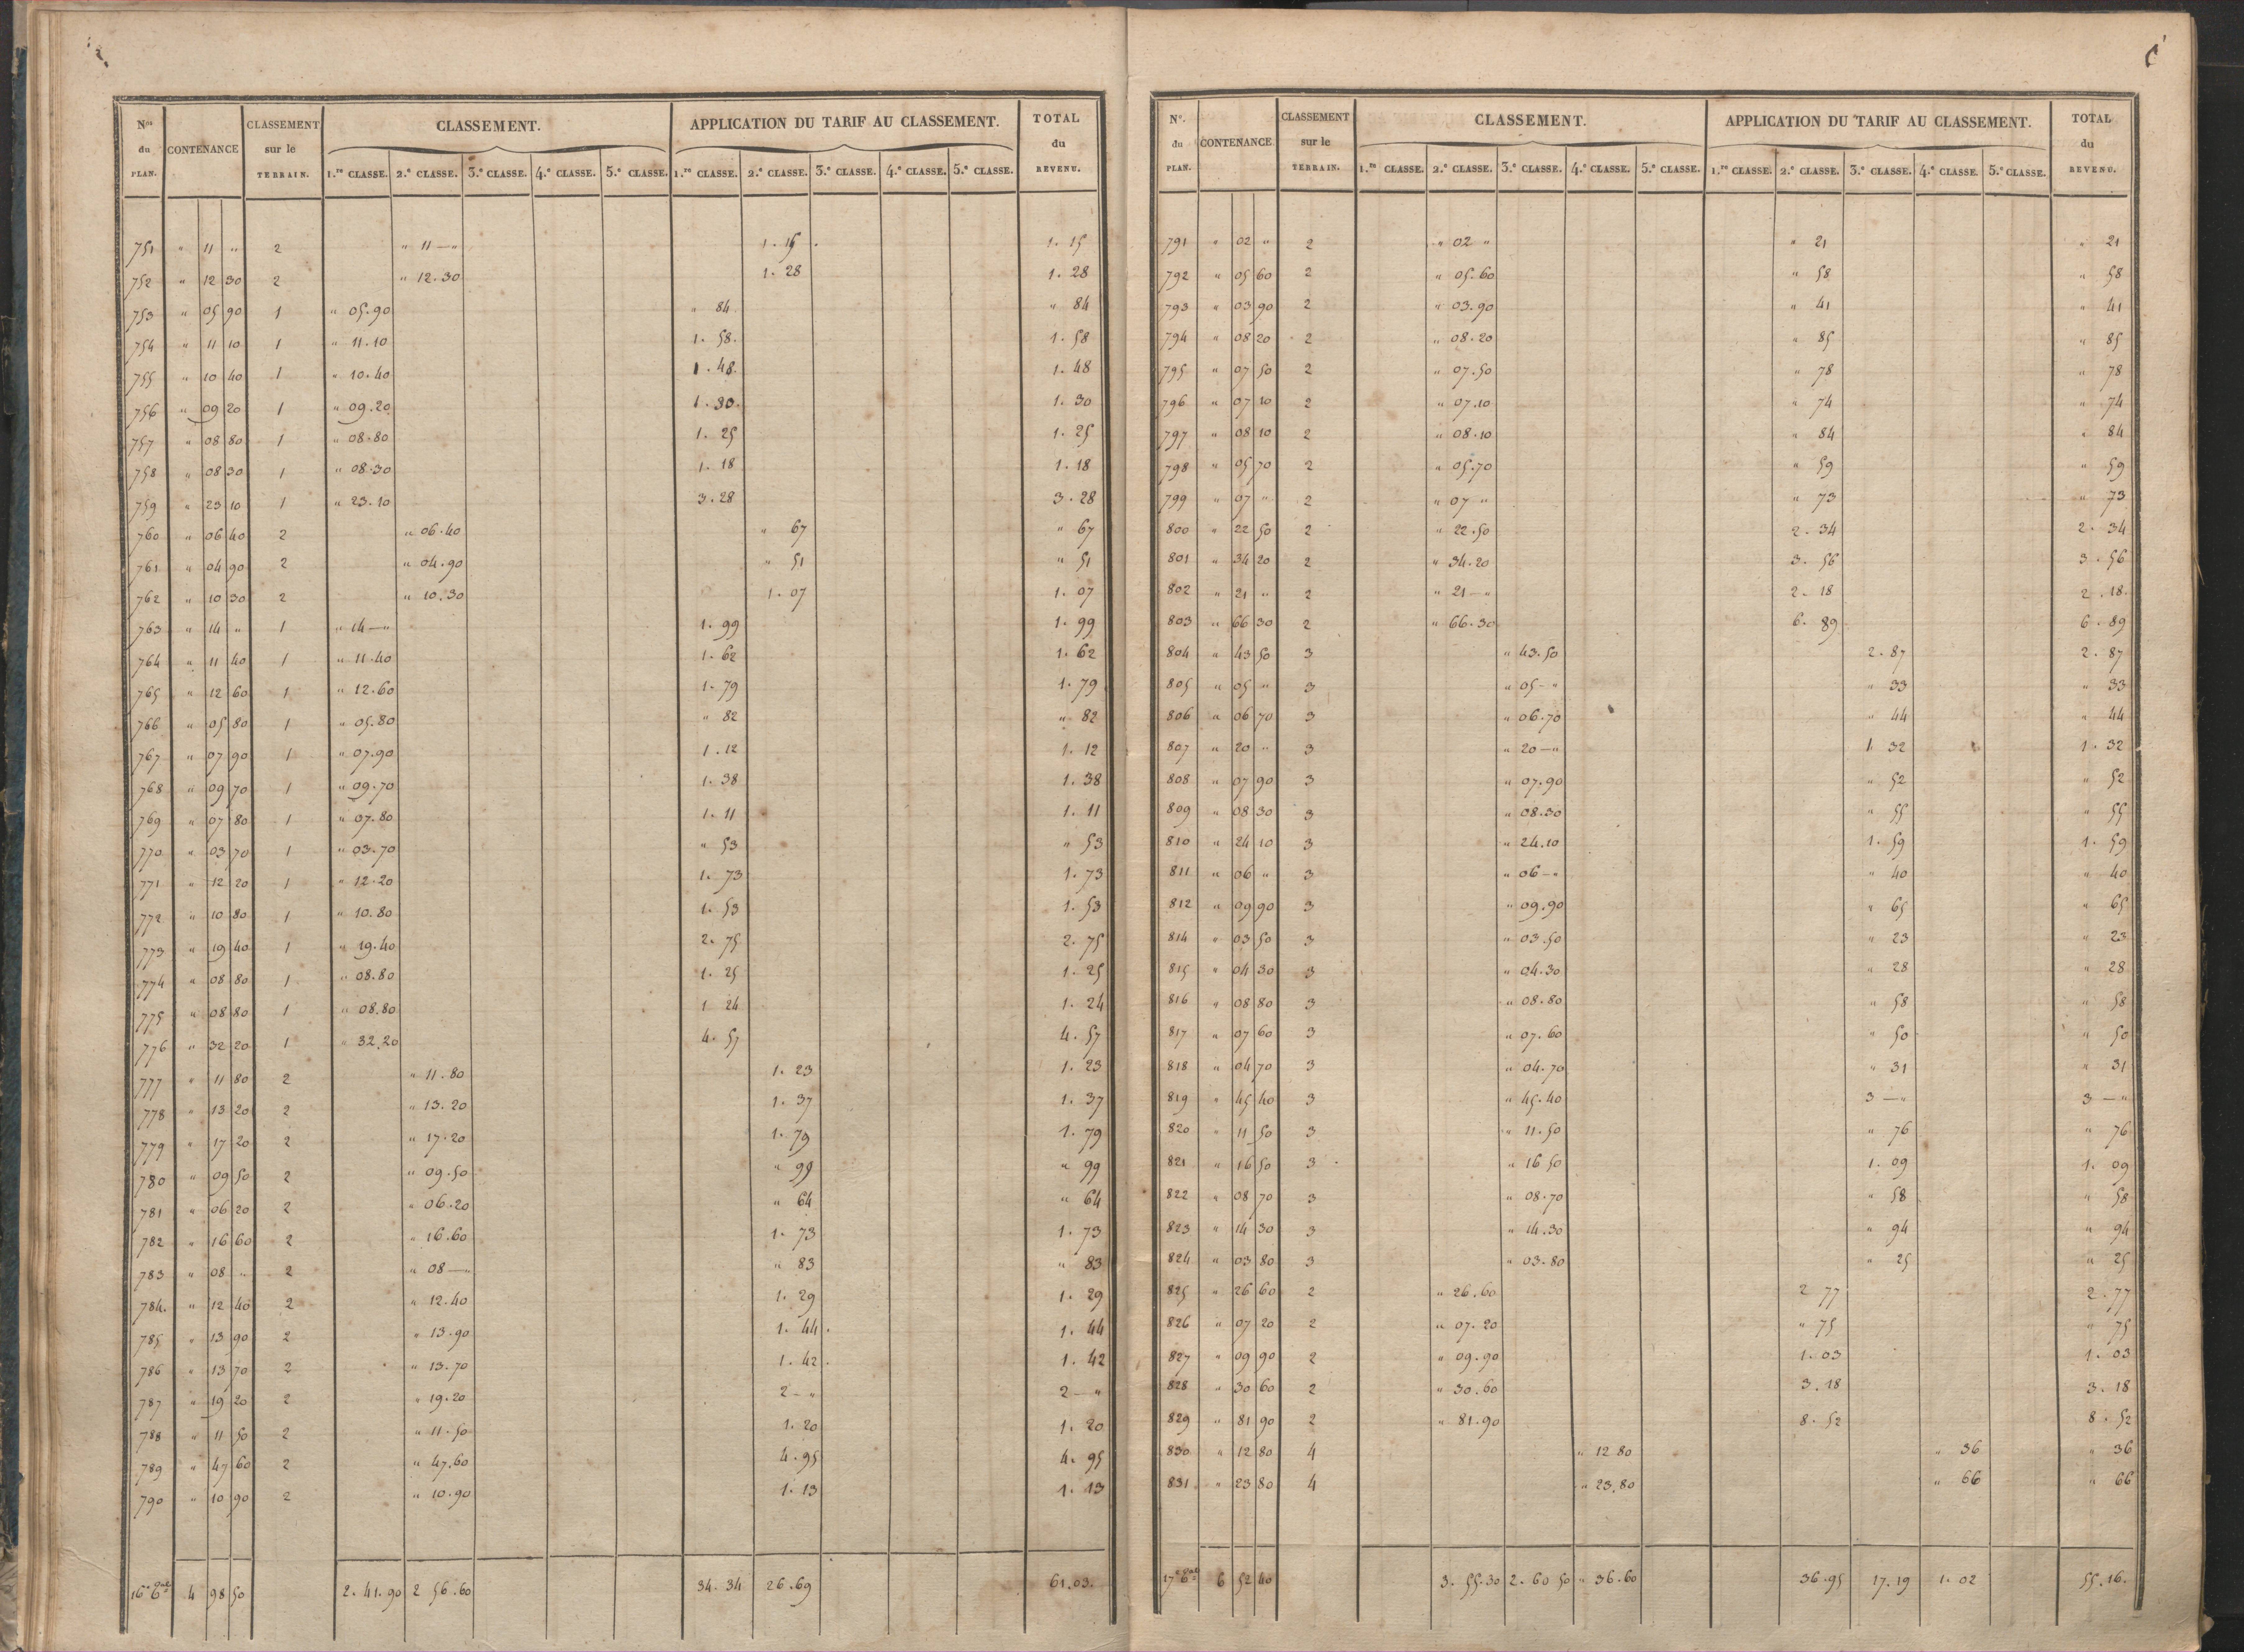 Nos du PLAN. CONTENANCE CLASSEMENT sur le TERRAIN. CLASSEMENT. APPLICATION DU TARIF AU CLASSEMENT. TOTAL du REVENU.
1.re CLASSE. 2.e CLASSE. 3.e CLASSE. 4.e CLASSE. 5.e CLASSE. 1.re CLASSE. 2.e CLASSE. 3.e CLASSE. 4.e CLASSE. 5.e CLASSE.
751 " 11 " 2 " 11 — " 1. 15 1. 15
752 " 12 30 2 " 12.30 1. 28 1. 28
753 " 05 90 1 " 05.90 " 84 " 84
754 " 11 10 1 " 11.10 1. 58. 1. 58
755 " 10 40 1 " 10.40 1. 48. 1. 48
756 " 09 20 1 " 09.20 1. 30. 1. 30
757 " 08 80 1 " 08.80 1. 25 1. 25
758 " 08 30 1 " 08.30 1. 18 1. 18
759 " 23 10 1 " 23.10 3. 28 3. 28
760 " 06 40 2 " 06.40 " 67 " 67
761 " 04 90 2 " 04.90 " 51 " 51
762 " 10 30 2 " 10.30 1. 07 1. 07
763 " 14 " 1 " 14 — " 1. 99 1. 99
764 " 11 40 1 " 11.40 1. 62 1. 62
765 " 12 60 1 " 12.60 1. 79 1. 79
766 " 05 80 1 " 05.80 " 82 " 82
767 " 07 90 1 " 07.90 1. 12 1. 12
768 " 09 70 1 " 09.70 1. 38 1. 38
769 " 07 80 1 " 07.80 1. 11 1. 11
770 " 03 70 1 " 03.70 " 53 " 53
771 " 12 20 1 " 12.20 1. 73 1. 73
772 " 10 80 1 " 10.80 1. 53 1. 53
773 " 19 40 1 " 19.40 2. 75 2. 75
774 " 08 80 1 " 08.80 1. 25 1. 25
775 " 08 80 1 " 08.80 1 24 1. 24
776 " 32 20 1 " 32.20 4. 57 4. 57
777 " 11 80 2 " 11.80 1. 23 1. 23
778 " 13 20 2 " 13.20 1. 37 1. 37
779 " 17 20 2 " 17.20 1. 79 1. 79
780 " 09 50 2 " 09.50 " 99 " 99
781 " 06 20 2 " 06.20 " 64 " 64
782 " 16 60 2 " 16.60 1. 73 1. 73
783 " 08 " 2 " 08 — " " 83 " 83
784. " 12 40 2 " 12.40 1. 29 1. 29
785 " 13 90 2 " 13.90 1. 44. 1. 44
786 " 13 70 2 " 13.70 1. 42. 1. 42
787 " 19 20 2 " 19.20 2 — " 2 — "
788 " 11 50 2 " 11.50 1. 20 1. 20
789 " 47 60 2 " 47.60 4. 95 4. 95
790 " 10 90 2 " 10.90 1. 13 1. 13
16e 4 98 50 2. 41. 90 2 56.60 34. 34 26.69 61.03.
No. du PLAN. CONTENANCE. CLASSEMENT sur le TERRAIN. CLASSEMENT. APPLICATION DU TARIF AU CLASSEMENT. TOTAL du REVENU.
1.re CLASSE. 2.e CLASSE. 3.e CLASSE. 4.e CLASSE. 5.e CLASSE. 1.re CLASSE. 2.e CLASSE. 3.e CLASSE. 4.e CLASSE. 5.e CLASSE.
791 " 02 " 2 " 02 " " 21 " 21
792 " 05 60 2 " 05.60 " 58 " 58
793 " 03 90 2 " 03.90 " 41 " 41
794 " 08 20 2 " 08.20 " 85 " 85
795 " 07 50 2 " 07.50 " 78 " 78
796 " 07 10 2 " 07.10 " 74 " 74
797 " 08 10 2 " 08.10 " 84 " 84
798 " 05 70 2 " 05.70 " 59 " 59
799 " 07 " 2 " 07 " " 73 " 73
800 " 22 50 2 " 22.50 2. 34 2. 34
801 " 34 20 2 " 34.20 3. 56 3. 56
802 " 21 " 2 " 21 — " 2. 18 2. 18.
803 " 66 30 2 " 66.30 6. 89 6. 89
804 " 43 50 3 " 43.50 2. 87 2. 87
805 " 05 " 3 " 05 — " " 33 " 33
806 " 06 70 3 " 06.70 " 44 " 44
807 " 20 " 3 " 20 — " 1. 32 1. 32
808 " 07 90 3 " 07.90 " 52 " 52
809 " 08 30 3 " 08.30 " 55 " 55
810 " 24 10 3 " 24.10 1. 59 1. 59
811 " 06 " 3 " 06 — " " 40 " 40
812 " 09 90 3 " 09.90 " 65 " 65
814 " 03 50 3 " 03.50 " 23 " 23
815 " 04 30 3 " 04.30 " 28 " 28
816 " 08 80 3 " 08.80 " 58 " 58
817 " 07 60 3 " 07.60 " 50 " 50
818 " 04 70 3 " 04.70 " 31 " 31
819 " 45 40 3 " 45.40 3 — " 3 — "
820 " 11 50 3 " 11.50 " 76 " 76
821 " 16 50 3 " 16 50 1. 09 1. 09
822 " 08 70 3 " 08.70 " 58 " 58
823 " 14 30 3 " 14.30 " 94 " 94
824 " 03 80 3 " 03.80 " 25 " 25
825 " 26 60 2 " 26.60 2 77 2. 77
826 " 07 20 2 " 07.20 " 75 " 75
827 " 09 90 2 " 09.90 1. 03 1. 03
828 " 30 60 2 " 30.60 3. 18 3. 18
829 " 81 90 2 " 81.90 8. 52 8. 52
830 " 12 80 4 " 12 80 " 36 " 36
831 " 23 80 4 " 23.80 " 66 " 66
17e 6 52 40 3. 55.30 2. 60 50 " 36.60 36.95 17.19 1. 02 55.16.